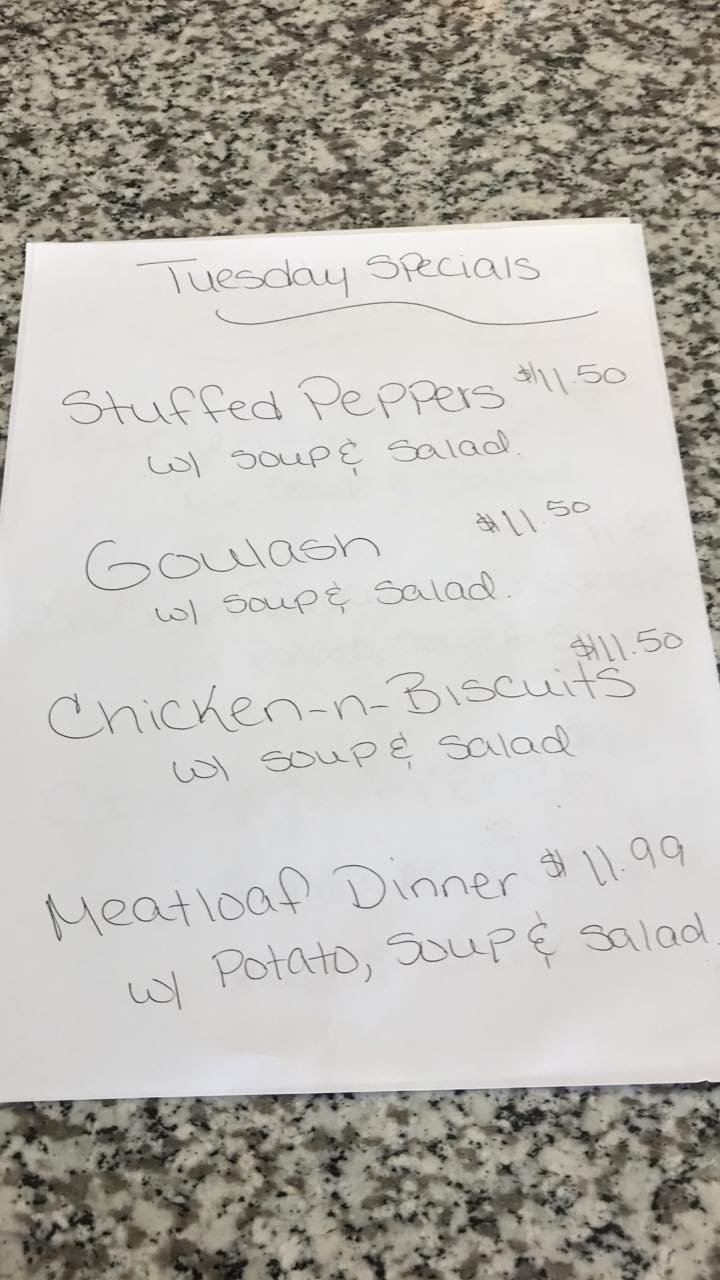 Tuesday Specials
Stuffed Peppers $11.50
w/ soup & salad.
Goulash $11.50
w/ soup & salad.
$11.50
Chicken-n-Biscuits
w/ soup & salad
Meatloaf Dinner $11.99
w/ Potato, soup & salad.